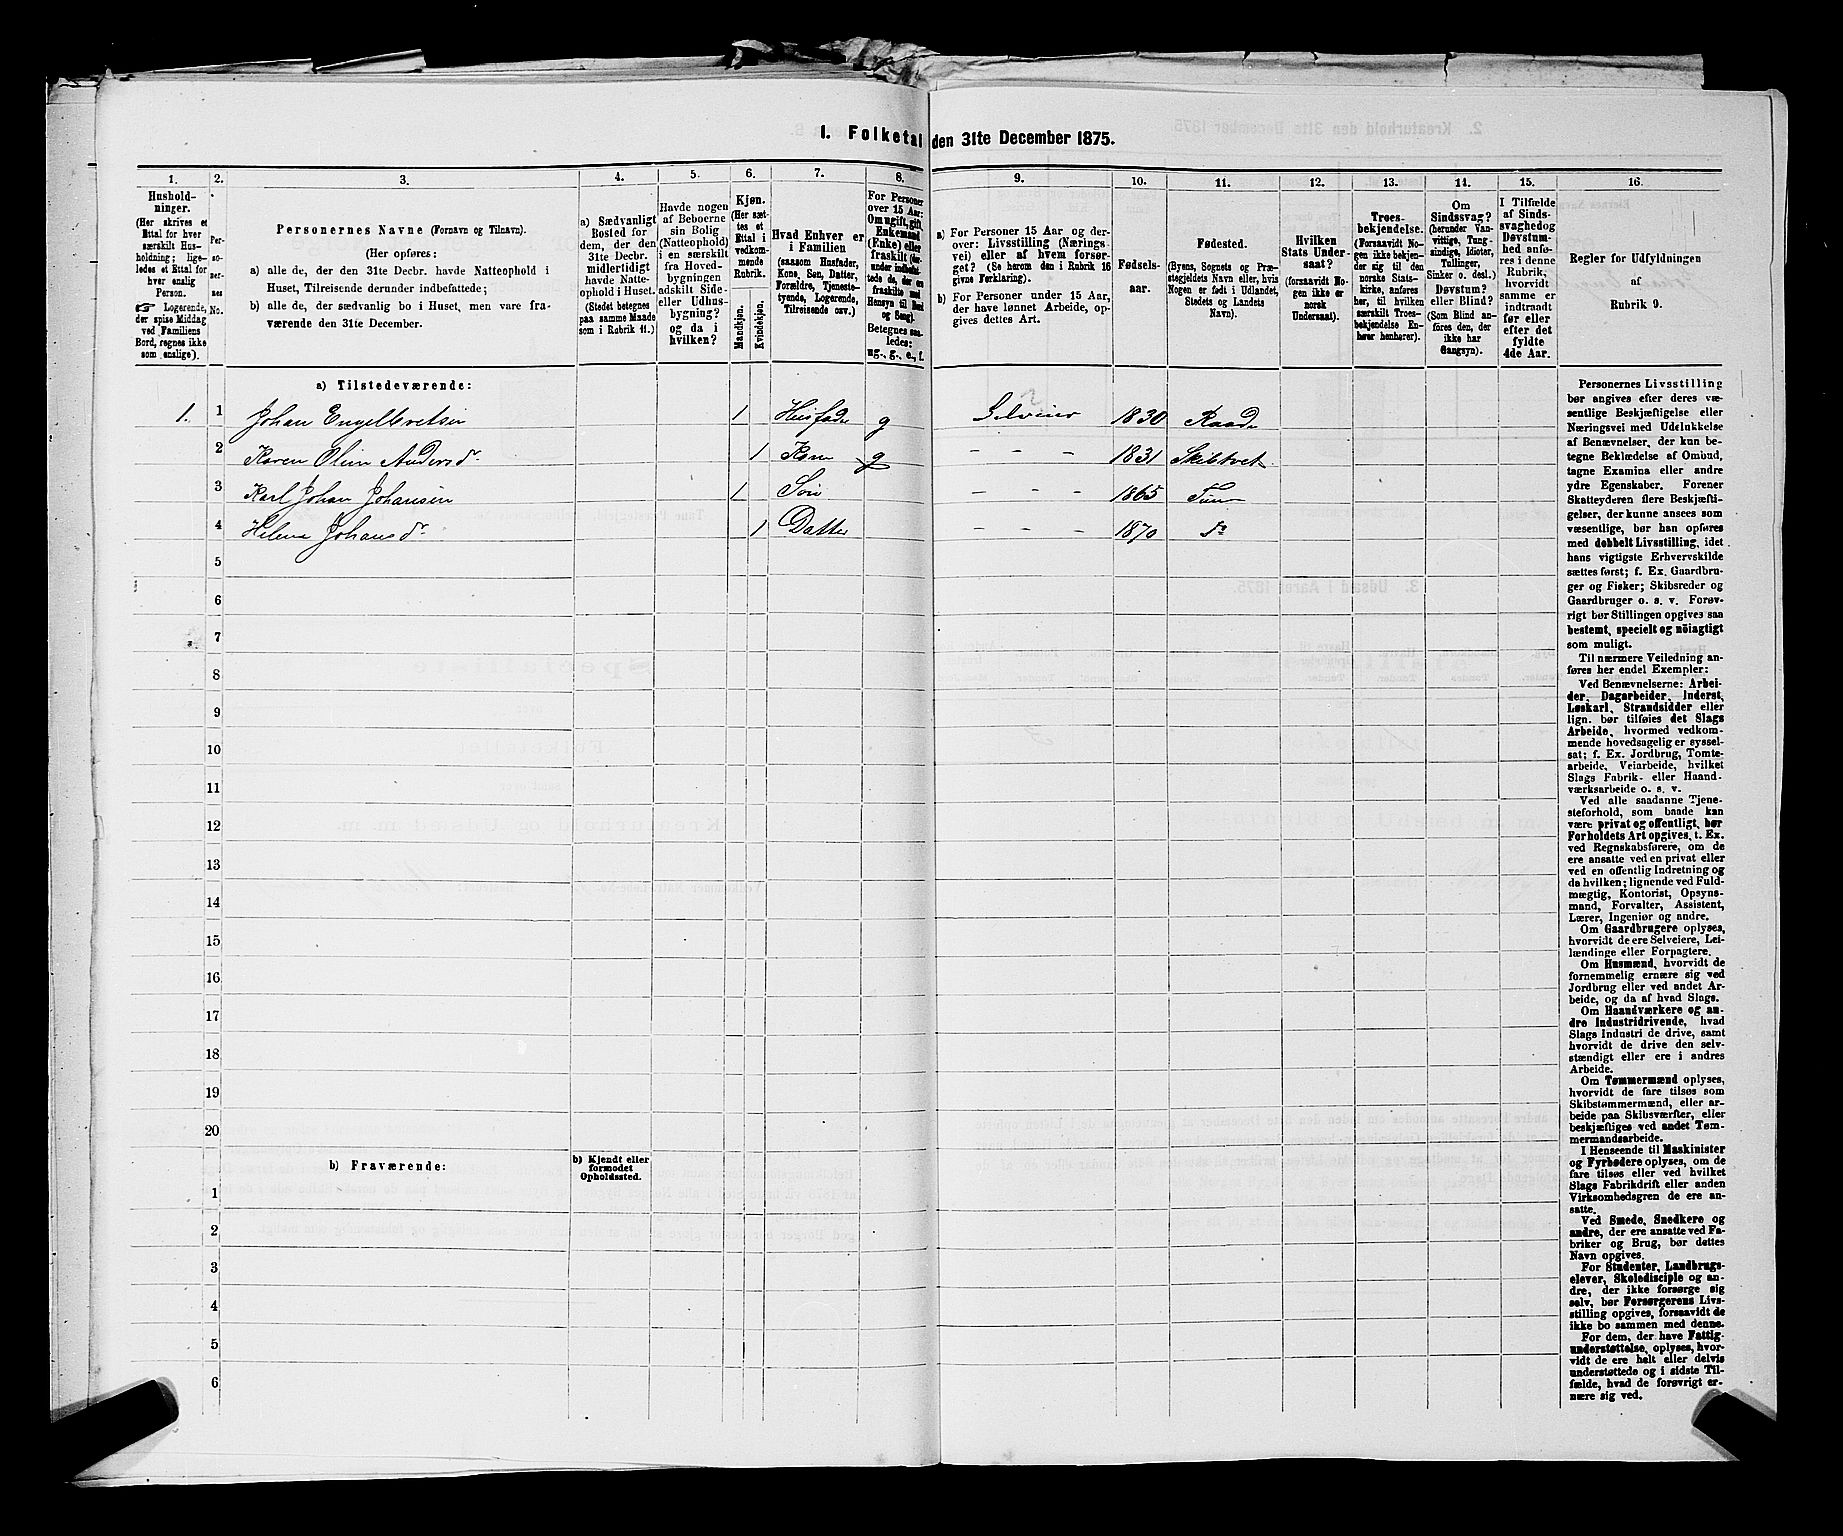 1. Folketal den 31te December 1875.
1. 2. 3. 4. 5. 6. 7. 8. 9. 10. 11. 12. 13. 14. 15. 16.
Hushold-
ninger.
(Her skrives et
Ettal for hver
særskilt Hus-
holdning; lige-
ledes et Ettal for
hver enslig
Person.
☞ Logerende,
der spise Middag
ved Familiens
Bord, regnes ikke
som enslige).
Per-
so-
ner-
nes
No.
Personernes Navne (Fornavn og Tilnavn).
(Her opføres:
a) alle de, der den 31te Decbr. havde Natteophold i
Huset, Tilreisende derunder indbefattede;
b) alle de, der sædvanlig bo i Huset, men vare fra-
værende den 31te December.
a) Sædvanligt
Bosted for
dem, der den
31te Decbr.
midlertidigt
havde Natte-
ophold i Huset.
(Stedet betegnes
paa samme Maade
som i Rubrik 11.)
Havde nogen
af Beboerne
sin Bolig
(Natteophold)
i en særskilt
fra Hoved-
bygningen
adskilt Side-
eller Udhus-
bygning?
og da i
hvilken?
Kjøn.
(Her sæt-
tes et
Ettal i
vedkom-
mende
Rubrik.
Mandkjøn.
Kvindekjøn.
Hvad Enhver er
i Familien
(saasom Husfader,
Kone, Søn, Datter,
Forældre, Tjeneste-
tyende, Logerende,
Tilreisende osv.)
For Personer
over 15 Aar:
Om ugift, gift,
Enkemand
(Enke) eller
fraskilt (der-
under indbefat-
tede de, der ere
fraskilte med
Hensyn til Bord
og Seng).
Betegnes saa-
ledes:
ug., g., e., f.
a) For Personer 15 Aar og der-
over: Livsstilling (Nærings-
vei) eller af hvem forsør-
get? (Se herom den i Rubrik 16
givne Forklaring).
b) For Personer under 15 Aar,
der have lønnet Arbeide, op-
gives dettes Art.
Fødsels-
aar.
Fødested.
(Byens, Sognets og Præ-
stegjeldets Navn eller, hvis
Nogen er født i Udlandet,
Stedets og Landets
Navn).
Hvilken
Stats Under-
saat?
(forsaavidt No-
gen ikke er
norsk
Undersaat).
Troes-
bekjendelse.
(Forsaavidt No-
gen ikke bekjen-
der sig til den
norske Stats-
kirke, anføres
her, til hvilken
særskilt Troes-
bekjendelse En-
hver henhører).
Om
Sindssvag?
(herunder Van-
vittige, Tung-
sindige, Idioter,
Tullinger,
Sinker o. desl.)
Døvstum?
eller Blind?
(Som Blind an-
føres den, der
ikke har
Gangsyn).
I Tilfælde
af Sinds-
svaghed og
Døvstum-
hed anfø-
res i denne
Rubrik,
hvorvidt
samme er
indtraadt
før eller
efter det
fyldte
4de Aar.
Regler for Udfyldningen
af
Rubrik 9.
a) Tilstedeværende:
1. 1 Johan Engelbretsen 1 Husfader g Selveier 1830 Raade
2 Karen Olin Andersd. 1 Kone g - - - 1831 Skibtvet
3 Karl Johan Johansen 1 Søn - - - 1865 Tune
4 Helene Johansd. 1 Datter - - - 1870 do
5
6
7
8
9
10
11
12
13
14
15
16
17
18
19
20
b) Fraværende:
b) Kjendt eller
formodet
Opholdssted.
1
2
3
4
5
6
Personernes Livsstilling
bør angives efter deres væ-
sentlige Beskjæftigelse eller
Næringsvei med Udelukkelse
af Benævnelser, der kun be-
tegne Beklædelse af Ombud,
tagne Examina eller andre
ydre Egenskaber. Forener
Skatteyderen flere Beskjæfti-
gelser, der kunne ansees som
væsentlige, bør han opføres
med dobbelt Livsstilling, idet
hans vigtigste Erhvervskilde
sættes først; f. Ex. Gaardbru-
ger og Fisker; Skibsreder og
Gaardbruger o. s. v. Forøv-
rigt bør Stillingen opgives saa
bestemt, specielt og nøiagtigt
som muligt.
Til nærmere Veiledning an-
føres her endel Exempler:
Ved Benævnelserne: Arbei-
der, Dagarbeider, Inderst,
Løskarl, Strandsidder eller
lign. bør tilføies det Slags
Arbeide, hvormed vedkom-
mende hovedsagelig er syssel-
sat; f. Ex. Jordbrug, Tomte-
arbeide, Veiarbeide, hvilket
Slags Fabrik- eller Haand-
værksarbeide o. s. v.
Ved alle saadanne Tjene-
steforhold, som baade kan
være privat og offentligt, bør
Forholdets Art opgives, t. Ex.
ved Regnskabsførere, om de
ere ansatte ved en privat eller
ved en offentlig Indretning og
da hvilken; lignende ved Fuld-
mægtig, Kontorist, Opsyns-
mand, Forvalter, Assistent,
Lærer, Ingeniør og andre.
Om Gaardbrugere oplyses,
hvorvidt de ere Selveiere, Lei-
lændinge eller Forpagtere.
Om Husmænd, hvorvidt de
fornemmelig ernære sig ved
Jordbrug eller ved andet Ar-
beide, og da af hvad Slags.
Om Haandværkere og an-
dre Industridrivende, hvad
Slags Industri de drive, samt
hvorvidt de drive den selv-
stændigt eller ere i andres
Arbeide.
Om Tømmermænd oplyses,
hvorvidt de fare tilsøs som
Skibstømmermænd, eller ar-
beide paa Skibsværfter, eller
beskjæftiges ved andet Tøm-
mermandsarbeide.
I Henseende til Maskinister
og Fyrbødere oplyses, om de
fare tilsøs eller ved hvilket
Slags Fabrikdrift eller anden
Virksomhedsgren de ere an-
satte.
Ved Smede, Snedkere og
andre, der ere ansatte ved Fa-
briker og Brug, bør dettes
Navn opgives.
For Studenter, Landbrugs-
elever, Skoledisciple og an-
dre, der ikke forsørge sig
selv, bør Forsørgerens Livs-
stilling opgives, forsaavidt de
ikke bo sammen med denne.
For dem, der have Fattig-
understøttelse, oplyses, hvor-
vidt de ere helt eller delvis
understøttede og i sidste Til-
fælde, hvad de forøvrigt er-
nære sig ved.